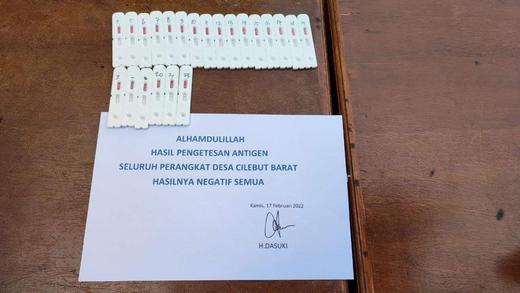 ALHAMDULILLAH
HASIL PENGETESAN ANTIGEN
SELURUH PERANGKAT DESA CILEBUT BARAT
HASILNYA NEGATIF SEMUA
Kamis, 17 Februari 2022
H.DASUKI